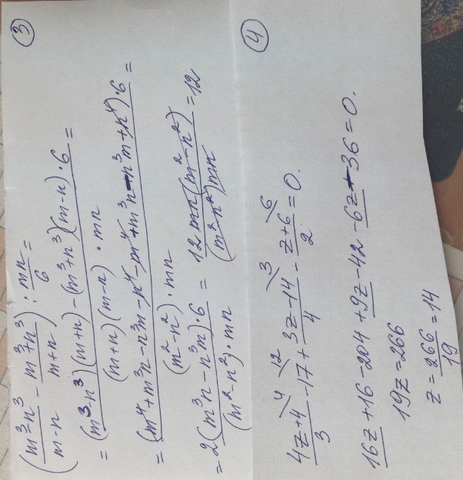 ③
(m³-n³/m-n - m³+n³/m+n) : mn/6 =
= ((m³-n³)(m+n) - (m³+n³)(m-n))·6 / (m+n)(m-n)·mn =
= (m⁴+m³n-n³m-n⁴-m⁴+m³n-n³m+n⁴)·6 / (m²-n²)·mn =
= 2(m³n-n³m)·6 / (m²-n²)·mn = 12mn(m²-n²) / (m²-n²)mn = 12
④
4z+4/3 \4 - 17 \12 + 3z-14/4 \3 - z+6/2 \6 = 0.
16z+16-204+9z-42-6z-36=0.
19z=266
z=266/19=14